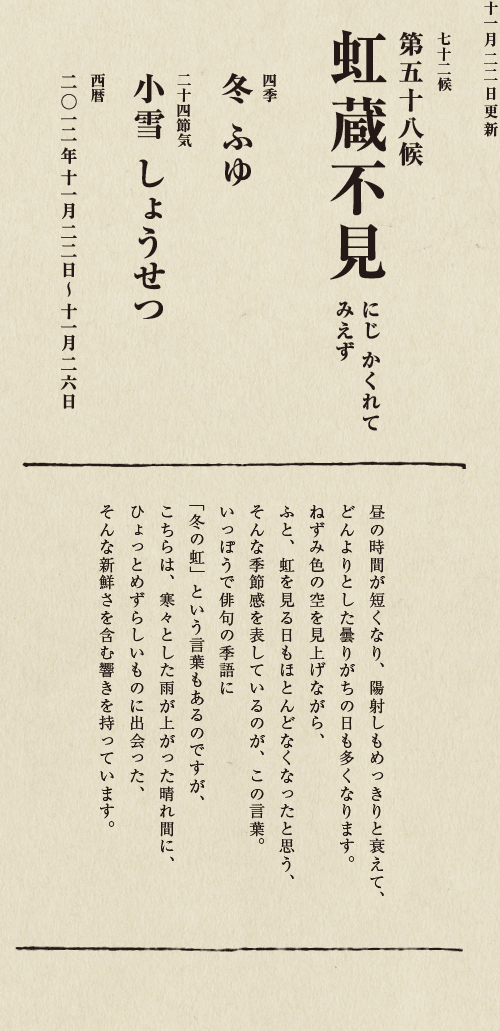 十一月二二日更新
七十二候
第五十八候
虹蔵不見
にじ かくれて
みえず
四季
冬 ふゆ
二十四節気
小雪 しょうせつ
西暦
二〇一二年十一月二二日～十一月二六日
昼の時間が短くなり、陽射しもめっきりと衰えて、
どんよりとした曇りがちの日も多くなります。
ねずみ色の空を見上げながら、
ふと、虹を見る日もほとんどなくなったと思う、
そんな季節感を表しているのが、この言葉。
いっぽうで俳句の季語に
「冬の虹」という言葉もあるのですが、
こちらは、寒々とした雨が上がった晴れ間に、
ひょっとめずらしいものに出会った、
そんな新鮮さを含む響きを持っています。